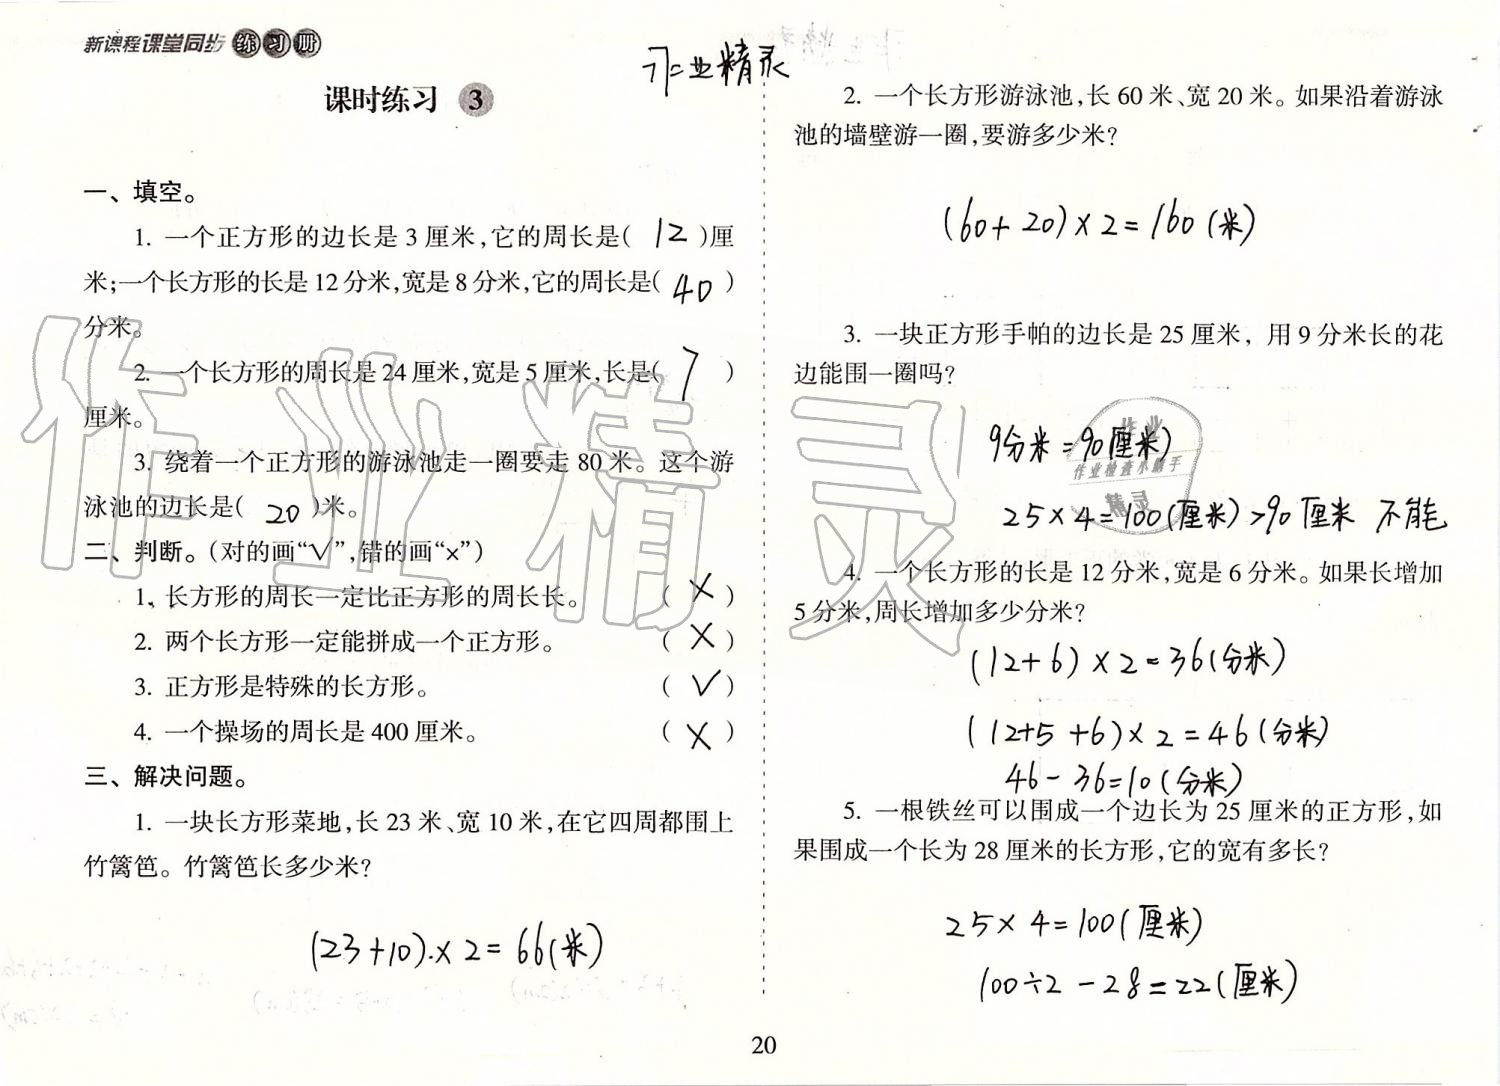 新课程课堂同步练习册
作业精灵
课时练习 3
一、填空。
1. 一个正方形的边长是3厘米,它的周长是( 12 )厘
米;一个长方形的长是12分米,宽是8分米,它的周长是( 40 )
分米。
2. 一个长方形的周长是24厘米,宽是5厘米,长是( 7 )
厘米。
3. 绕着一个正方形的游泳池走一圈要走80米。这个游
泳池的边长是( 20 )米。
二、判断。(对的画“√”,错的画“×”)
1. 长方形的周长一定比正方形的周长长。 ( × )
2. 两个长方形一定能拼成一个正方形。 ( × )
3. 正方形是特殊的长方形。 ( √ )
4. 一个操场的周长是400厘米。 ( × )
三、解决问题。
1. 一块长方形菜地,长23米、宽10米,在它四周都围上
竹篱笆。竹篱笆长多少米?
(23+10)×2=66(米)
2. 一个长方形游泳池,长60米、宽20米。如果沿着游泳
池的墙壁游一圈,要游多少米?
(60+20)×2=160(米)
3. 一块正方形手帕的边长是25厘米, 用9分米长的花
边能围一圈吗?
9分米=90(厘米)
25×4=100(厘米)>90厘米 不能
4. 一个长方形的长是12分米,宽是6分米。如果长增加
5分米,周长增加多少分米?
(12+6)×2=36(分米)
(12+5+6)×2=46(分米)
46-36=10(分米)
5. 一根铁丝可以围成一个边长为25厘米的正方形,如
果围成一个长为28厘米的长方形,它的宽有多长?
25×4=100(厘米)
100÷2-28=22(厘米)
20
作业精灵
作业
作业检查小助手
精灵